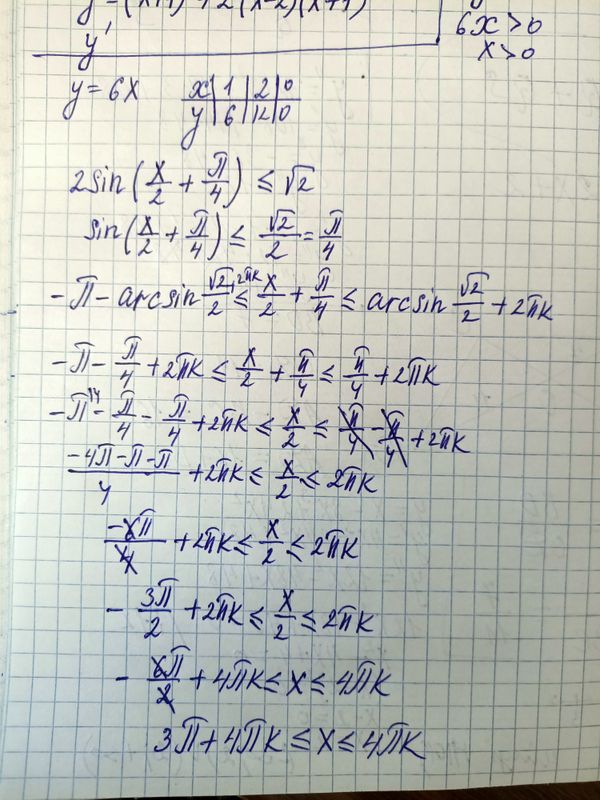 y = (x+1) + 2(x-2)(x+1)
y'
6x > 0
x > 0
y = 6x
x | 1 | 2 | 0
y | 6 | 12 | 0
2sin(x/2 + π/4) ≤ √2
sin(x/2 + π/4) ≤ √2/2 = π/4
-π - arcsin √2/2 + 2πk ≤ x/2 + π/4 ≤ arcsin √2/2 + 2πk
-π - π/4 + 2πk ≤ x/2 + π/4 ≤ π/4 + 2πk
-π^{\4} - π/4 - π/4 + 2πk ≤ x/2 ≤ π/4 - π/4 + 2πk
(-4π-π-π)/4 + 2πk ≤ x/2 ≤ 2πk
-6π/4 + 2πk ≤ x/2 ≤ 2πk
- 3π/2 + 2πk ≤ x/2 ≤ 2πk
- 6π/2 + 4πk ≤ x ≤ 4πk
3π + 4πk ≤ x ≤ 4πk